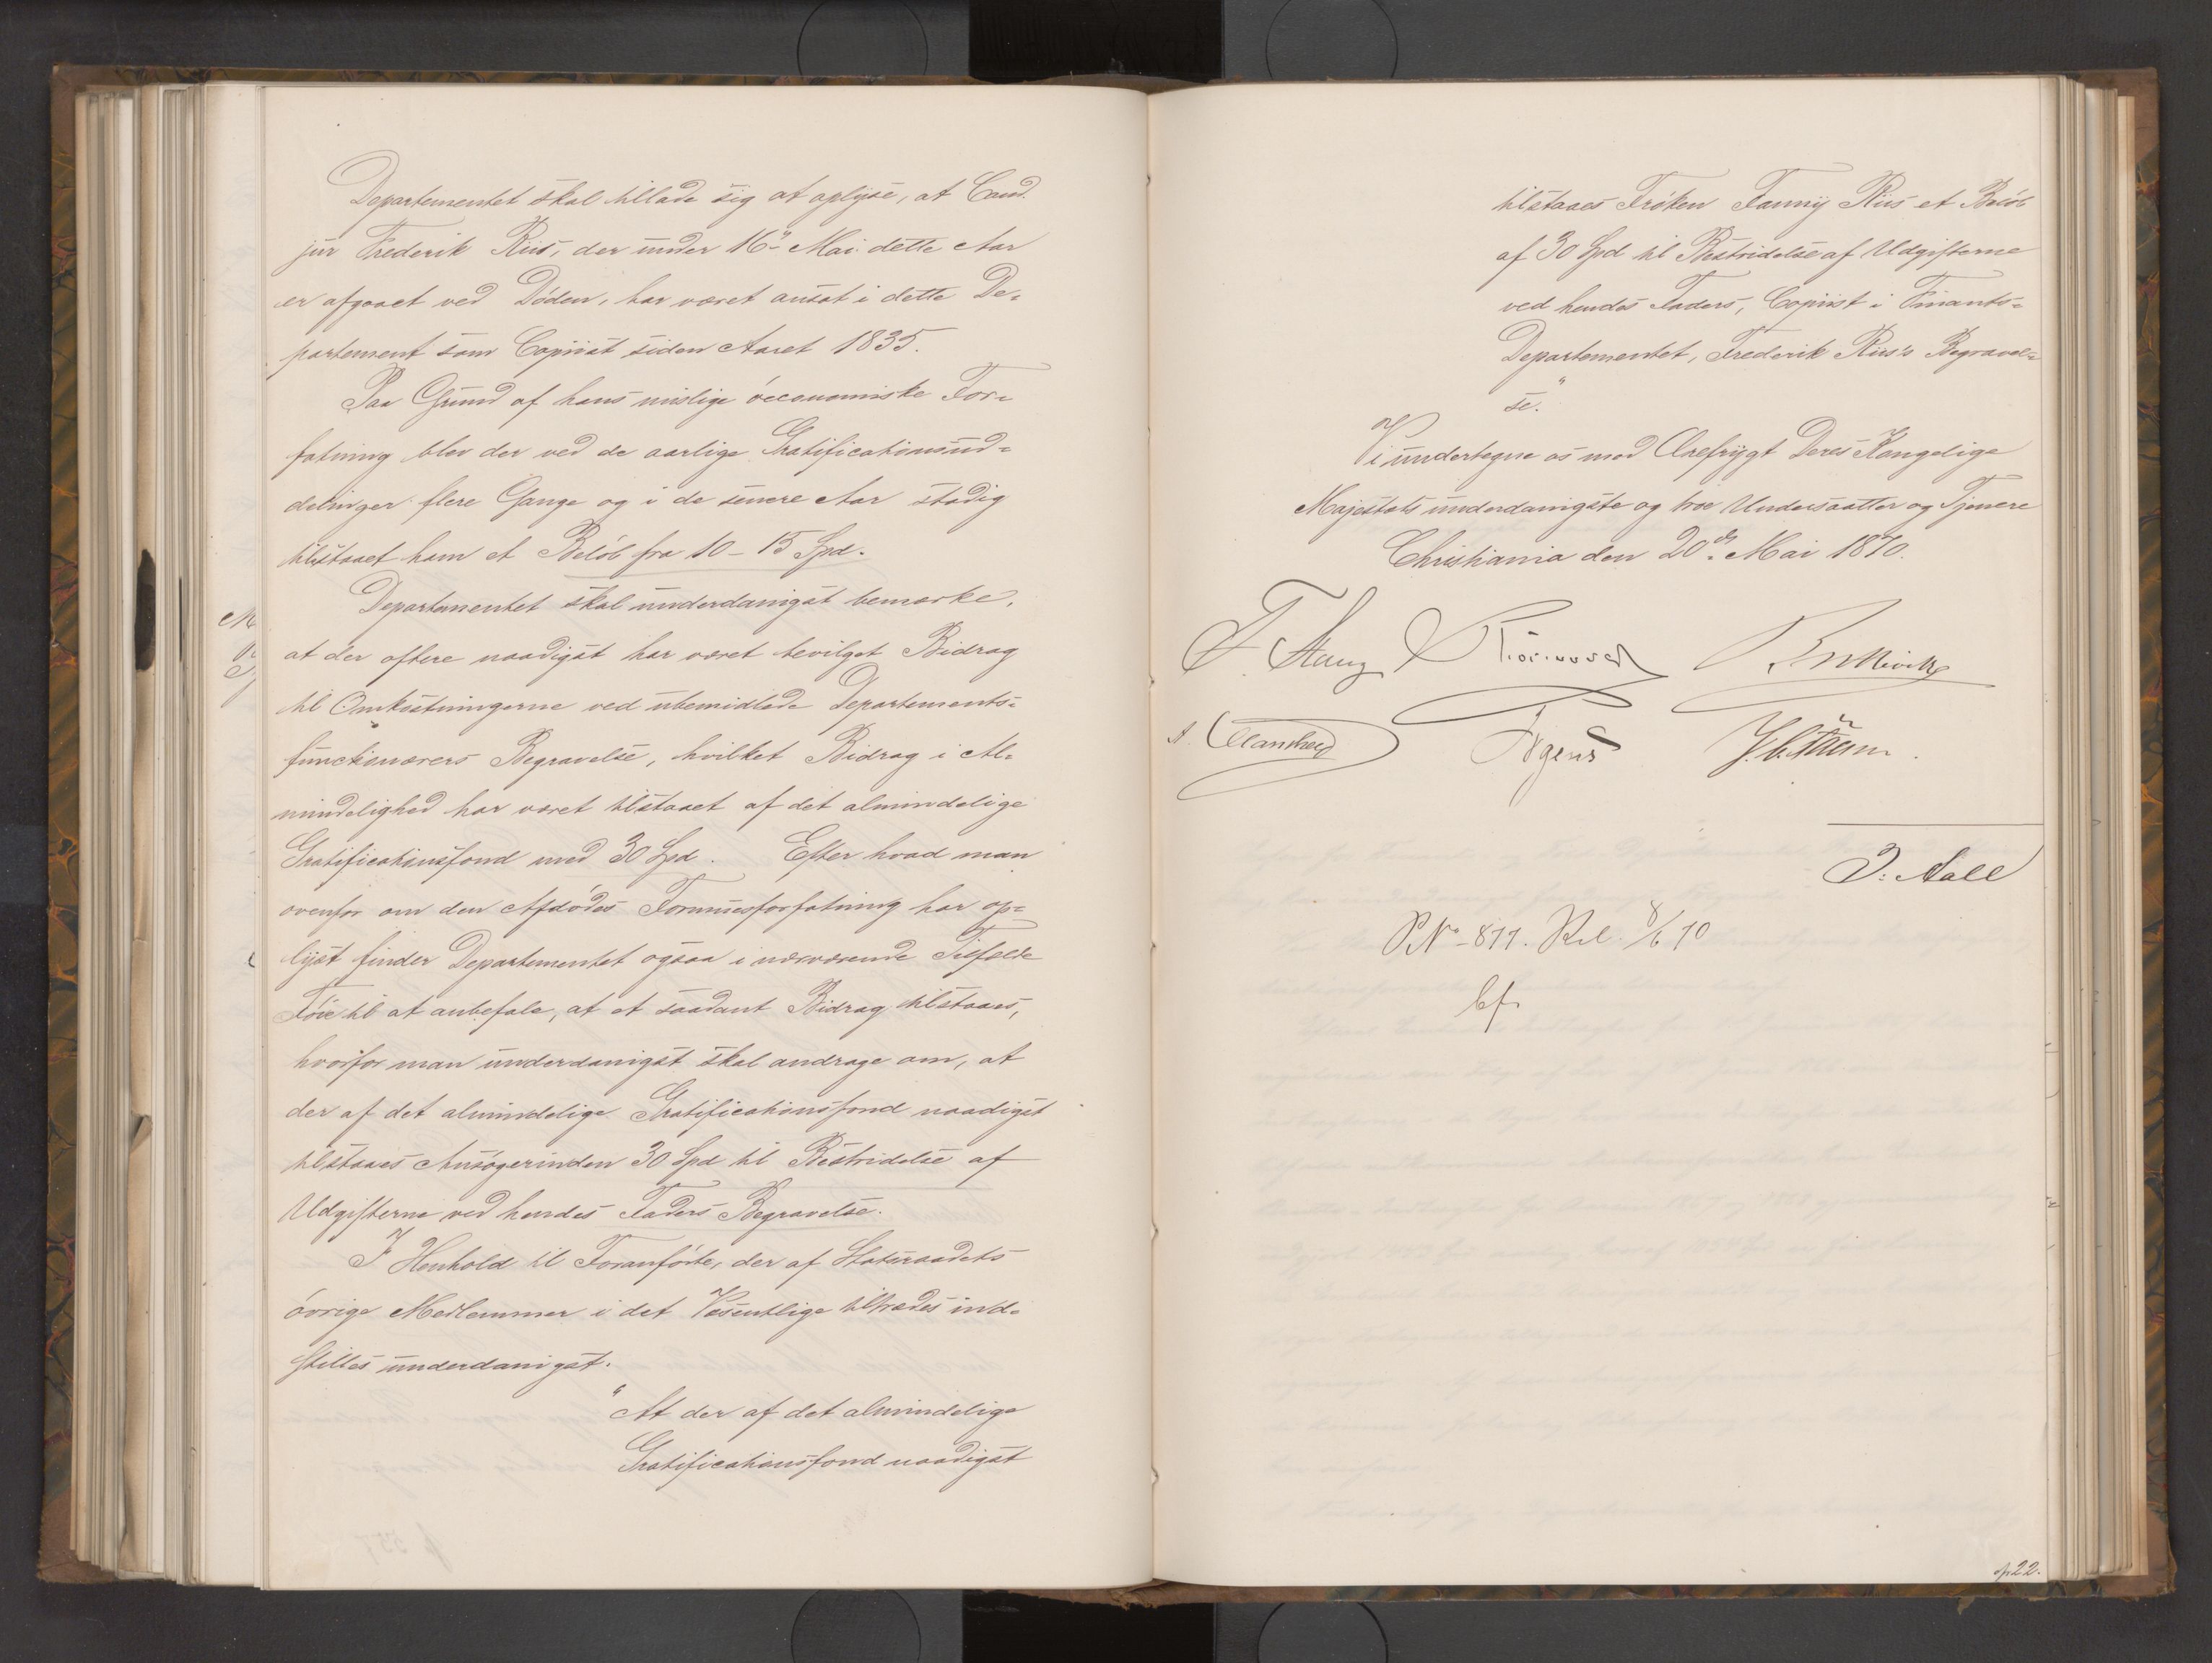 Departementet skal tillade sig at oplyse, at Cand.
jur Frederik Riis, der under 16de Mai dette Aar
er afgaaet ved Døden, har været ansat i dette De-
partement som Copiist siden Aaret 1835.
Paa Grund af hans mislige øeconomiske For-
fatning blev der ved de aarlige Gratificationsud-
delinger flere Gange og i de senere Aar stadig
tilstaaet ham et Beløb fra 10-15 Spd.
Departementet skal underdanigst bemærke,
at der oftere naadigst har været bevilget Bidrag
til Omkostningerne ved ubemidlede Departements-
functionærers Begravelse, hvilket Bidrag i Al-
mindelighed har været tilstaaet af det almindelige
Gratificationsfond med 30 Spd. Efter hvad man
ovenfor om den Afdødes Formuesforfatning har op-
lyst finder Departementet ogsaa i nærværende Tilfælde
Føie til at anbefale, at et saadant Bidrag tilstaaes,
hvorfor man underdanigst skal andrage om, at
der af det almindelige Gratificationsfond naadigst
tilstaaes Ansøgerinden 30 Spd til Bestridelse af
Udgifterne ved hendes Faders Begravelse.
I Henhold til Foranførte, der af Statsraadets
øvrige Medlemmer i det Væsentlige tiltrædes ind-
stilles underdanigst:
"At der af det almindelige
Gratificationsfond naadigst
tilstaaes Frøken Fanny Riis et Beløb
af 30 Spd til Bestridelse af Udgifterne
ved hendes Faders, Copiist i Finants-
Departementet, Frederik Riis's Begravel-
se."
Vi undertegne os med Ærefrygt Deres Kongelige
Majestæts underdanigste og troe Undersaatter og Tjenere
Christiania den 20de Mai 1870.
F. Stang
Irgens
J. Aall
P.N° 811. Rel. 8/6 70
p 22.